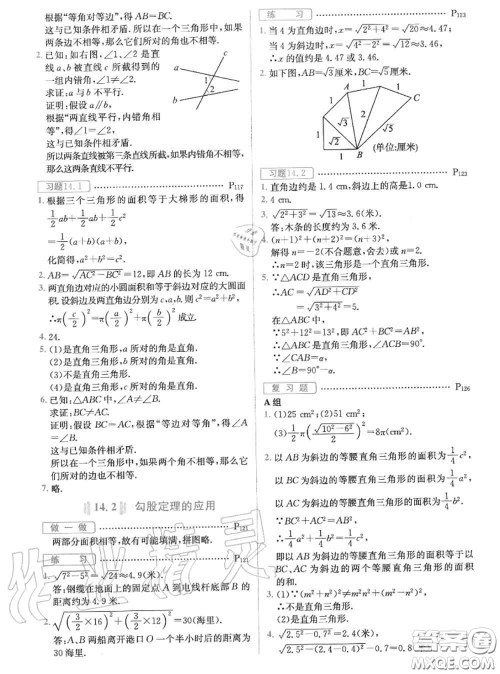 根据“等角对等边”,得AB=BC.
这与已知条件相矛盾.所以如果三角形中,如果
两条边不相等,那么它们所对的角不相等.
2.已知:如右图,∠1、∠2是直
线a、b被直线c所截得到的
一组内错角,∠1≠∠2.
求证:a与b不平行.
证明:假设a∥b,
根据“两直线平行,内错角相
等”,得∠1=∠2,
这与已知条件相矛盾.
所以两条直线被第三条直线所截,如果内错角不相等,
那么这两条直线不平行.
c
a
b
1
2
习题14.1
P117
1.根据三个三角形的面积等于大梯形的面积,得
1/2 ab+1/2 ab+1/2 c²
=1/2 (a+b)(a+b),
化简得,a²+b²=c².
2.AB=√(AC²-BC²)=12,即AB的长为12 cm.
3.两直角边对应的小圆面积和等于斜边对应的大圆面
积.设斜边及两直角边分别为c、a、b,则有a²+b²=c²,
∴π(c/2)²=π(a/2)²+π(b/2)²成立.
4.24.
5.(1)是直角三角形,a所对的角是直角.
(2)是直角三角形,b所对的角是直角.
(3)不是直角三角形.
(4)是直角三角形,c所对的角是直角.
6.已知:△ABC中,∠A≠∠B.
求证:BC≠AC.
证明:假设BC=AC,根据“等边对等角”,得∠A
=∠B.
这与已知条件相矛盾.
所以一个三角形中,如果两个角不相等,那么它们所
对的边也不相等.
7.略.
14.2 勾股定理的应用
做一做
P121
两部分面积相等,故有可能填满,拼图略.
练习
P121
1.√(7²-5²)=√24≈4.9(米).
答:钢缆在地面上的固定点A到电线杆底部B的
距离约为4.9米.
2.√((3/2×16)²+(3/2×12)²)=30(海里).
答:A、B两船离开港口O一个半小时后的距离为
30海里.
练习
P123
1.当4为直角边时,x=√(2²+4²)=√20≈4.47;
当4为斜边时,x=√(4²-2²)=√12≈3.46.
∴x的值约是4.47或3.46.
2.如下图,AB=√3厘米,BC=√5厘米.
A
B
C
1
1
1
1
√2
√3
2
√5
(单位:厘米)
习题14.2
P123
1.直角边约是1.4 cm,斜边上的高是1.0 cm.
2.4 cm.
3.√(2²+3²)=√13≈3.6(米).
答:木条的长度约为3.6米.
4.(n+1)²+(n+2)²=(n+3)²,
解得n=-2(不合题意,舍去)或n=2.
∴n=2时,该三角形是一个直角三角形.
5.∵△ACD是直角三角形,
∴AC=√(AD²+CD²)
=√(3²+4²)=5.
在△ABC中,
∵5²+12²=13²,即AC²+BC²=AB²,
∴△ABC是直角三角形.
∴∠CAB=α-∠A.
∴∠B=90°-α.
复习题
P126
A组
1.(1)25 cm²;(2)51 cm²;
(3)1/2 π(√(10²-6²)/2)²=8π(cm²).
2.以AB为斜边的等腰直角三角形的面积为1/4 c²,
以AC为斜边的等腰直角三角形的面积为1/4 b²,
以BC为斜边的等腰直角三角形的面积为1/4 a².
∵BC²+AC²=AB²,
∴1/4 a²+1/4 b²=1/4 c²,
即以AB为斜边的等腰直角三角形的面积等于以
AC为斜边和以BC为斜边的两个等腰直角三角形
的面积和.
3.(1)∵(m²+n²)²=(m²-n²)²+(2mn)²,
∴是直角三角形.
(2)不是直角三角形.
4.√(2.5²-0.7²)=2.4(米),
√(2.5²-2²)-0.7=0.8